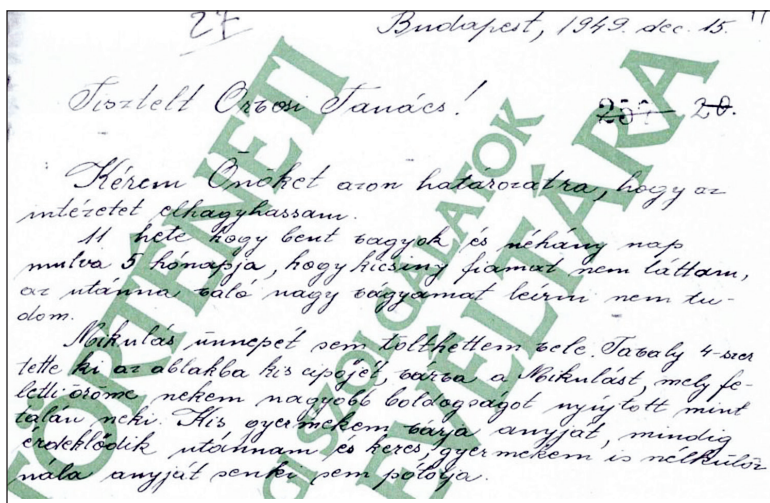 27
Budapest, 1949. dec. 15.
Tisztelt Orvosi Tanács!
20.
Kérem Önöket azon határozatra, hogy az
intézetet elhagyhassam.
11. hete hogy bent vagyok és néhány nap
mulva 5 hónapja, hogy kicsiny fiamat nem láttam,
az utánna való nagy vágyamat leírni nem tu-
dom.
Mikulás ünnepét sem tölthettem vele. Tavaly 4-szer
tette ki az ablakba kis cipőjét, várva a Mikulást, mely fe-
letti öröme nekem nagyobb boldogságot nyújtott mint
talán neki. Kis gyermekem várja anyját, mindig
érdeklődik utánnam és keres, gyermekem is nélkülöz
nála anyját senki sem pótolja.
TÖRTÉNETI
SZOLGÁLATOK
LEVÉLTÁRA